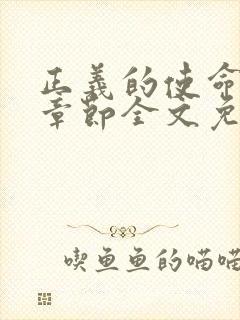 正义的使命
章节全文免
喫鱼鱼的喵喵